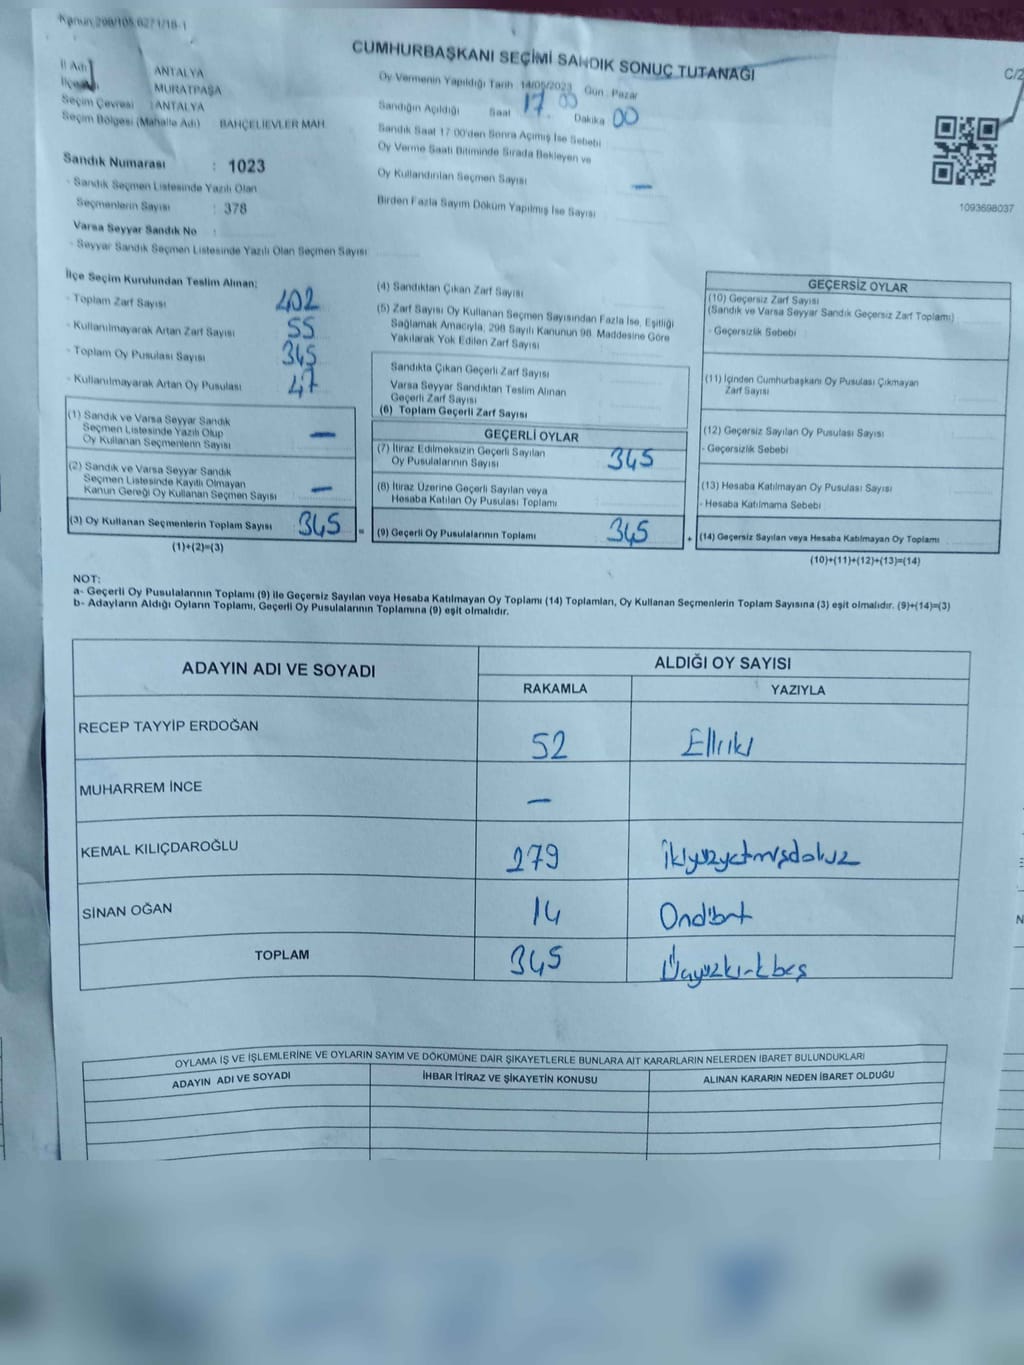 Kanun 298/105 6271/18-1
CUMHURBAŞKANI SEÇİMİ SANDIK SONUÇ TUTANAĞI
C/2
İl Adı ANTALYA
İlçe MURATPAŞA
Seçim Çevresi : ANTALYA
Seçim Bölgesi (Mahalle Adı) BAHÇELİEVLER MAH.
Oy Vermenin Yapıldığı Tarih 14/05/2023 Gün : Pazar
Sandığın Açıldığı Saat 17 00 Dakika 00
Sandık Saat 17 00'den Sonra Açımış İse Sebebi
Oy Verme Saati Bitiminde Sırada Bekleyen ve
Oy Kullandırılan Seçmen Sayısı —
Birden Fazla Sayım Döküm Yapılmış İse Sayısı
1093698037
Sandık Numarası : 1023
- Sandık Seçmen Listesinde Yazılı Olan
Seçmenlerin Sayısı : 378
Varsa Seyyar Sandık No :
- Seyyar Sandık Seçmen Listesinde Yazılı Olan Seçmen Sayısı
İlçe Seçim Kurulundan Teslim Alınan:
- Toplam Zarf Sayısı 402
- Kullanılmayarak Artan Zarf Sayısı 55
- Toplam Oy Pusulası Sayısı 345
- Kullanılmayarak Artan Oy Pusulası 47
(1) Sandık ve Varsa Seyyar Sandık
Seçmen Listesinde Yazılı Olup
Oy Kullanan Seçmenlerin Sayısı —
(2) Sandık ve Varsa Seyyar Sandık
Seçmen Listesinde Kayıtlı Olmayan
Kanun Gereği Oy Kullanan Seçmen Sayısı —
(3) Oy Kullanan Seçmenlerin Toplam Sayısı 345 =
(1)+(2)=(3)
(4) Sandıktan Çıkan Zarf Sayısı
(5) Zarf Sayısı Oy Kullanan Seçmen Sayısından Fazla İse, Eşitliği
Sağlamak Amacıyla, 298 Sayılı Kanunun 98. Maddesine Göre
Yakılarak Yok Edilen Zarf Sayısı
Sandıkta Çıkan Geçerli Zarf Sayısı
Varsa Seyyar Sandıktan Teslim Alınan
Geçerli Zarf Sayısı
(6) Toplam Geçerli Zarf Sayısı
GEÇERLİ OYLAR
(7) İtiraz Edilmeksizin Geçerli Sayılan
Oy Pusulalarının Sayısı 345
(8) İtiraz Üzerine Geçerli Sayılan veya
Hesaba Katılan Oy Pusulası Toplamı
(9) Geçerli Oy Pusulalarının Toplamı 345 +
GEÇERSİZ OYLAR
(10) Geçersiz Zarf Sayısı
(Sandık ve Varsa Seyyar Sandık Geçersiz Zarf Toplamı)
- Geçersizlik Sebebi :
(11) İçinden Cumhurbaşkanı Oy Pusulası Çıkmayan
Zarf Sayısı
(12) Geçersiz Sayılan Oy Pusulası Sayısı
- Geçersizlik Sebebi
(13) Hesaba Katılmayan Oy Pusulası Sayısı
- Hesaba Katılmama Sebebi
(14) Geçersiz Sayılan veya Hesaba Katılmayan Oy Toplamı
(10)+(11)+(12)+(13)=(14)
NOT:
a- Geçerli Oy Pusulalarının Toplamı (9) ile Geçersiz Sayılan veya Hesaba Katılmayan Oy Toplamı (14) Toplamları, Oy Kullanan Seçmenlerin Toplam Sayısına (3) eşit olmalıdır. (9)+(14)=(3)
b- Adayların Aldığı Oyların Toplamı, Geçerli Oy Pusulalarının Toplamına (9) eşit olmalıdır.
ADAYIN ADI VE SOYADI
ALDIĞI OY SAYISI
RAKAMLA YAZIYLA
RECEP TAYYİP ERDOĞAN 52 Elliiki
MUHARREM İNCE —
KEMAL KILIÇDAROĞLU 279 ikiyüzyetmişdokuz
SİNAN OĞAN 14 Ondört
TOPLAM 345 Üçyüzkırkbeş
OYLAMA İŞ VE İŞLEMLERİNE VE OYLARIN SAYIM VE DÖKÜMÜNE DAİR ŞİKAYETLERLE BUNLARA AİT KARARLARIN NELERDEN İBARET BULUNDUKLARI
ADAYIN ADI VE SOYADI İHBAR İTİRAZ VE ŞİKAYETİN KONUSU ALINAN KARARIN NEDEN İBARET OLDUĞU